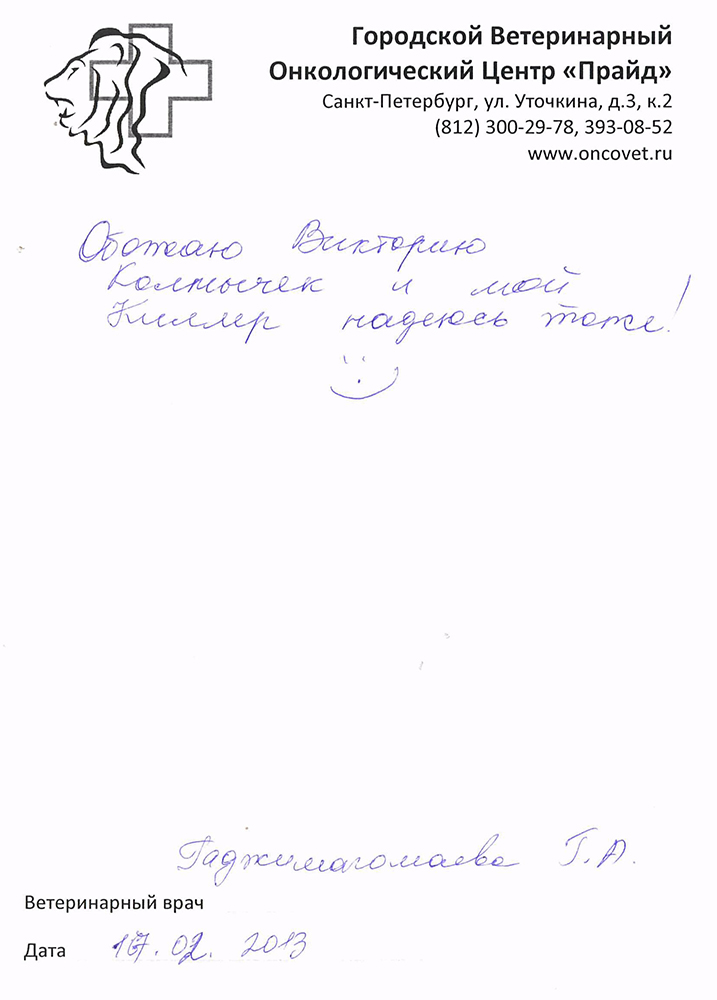 Городской Ветеринарный
Онкологический Центр «Прайд»
Санкт-Петербург, ул. Уточкина, д.3, к.2
(812) 300-29-78, 393-08-52
www.oncovet.ru
Обожаю Викторию
Колпычек и мой
Киллер надеюсь тоже!
Гаджимагомаева Г.А.
Ветеринарный врач
Дата 17.02.2013